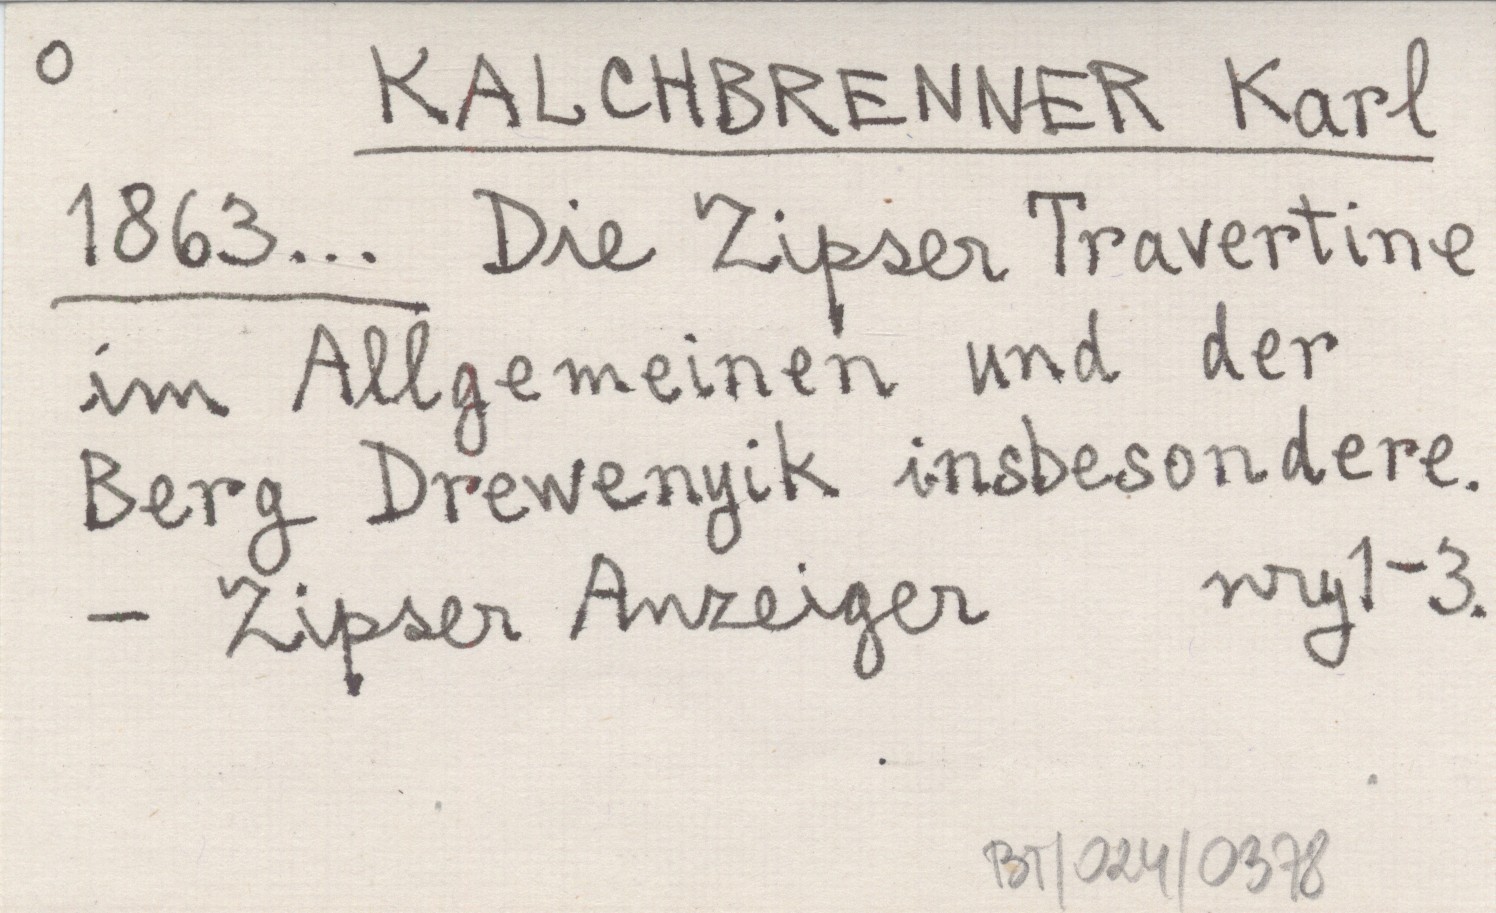 o KALCHBRENNER Karl
1863... Die Zipser Travertine
im Allgemeinen und der
Berg Drewenyik insbesondere.
– Zipser Anzeiger nry1-3.
BT/024/0378